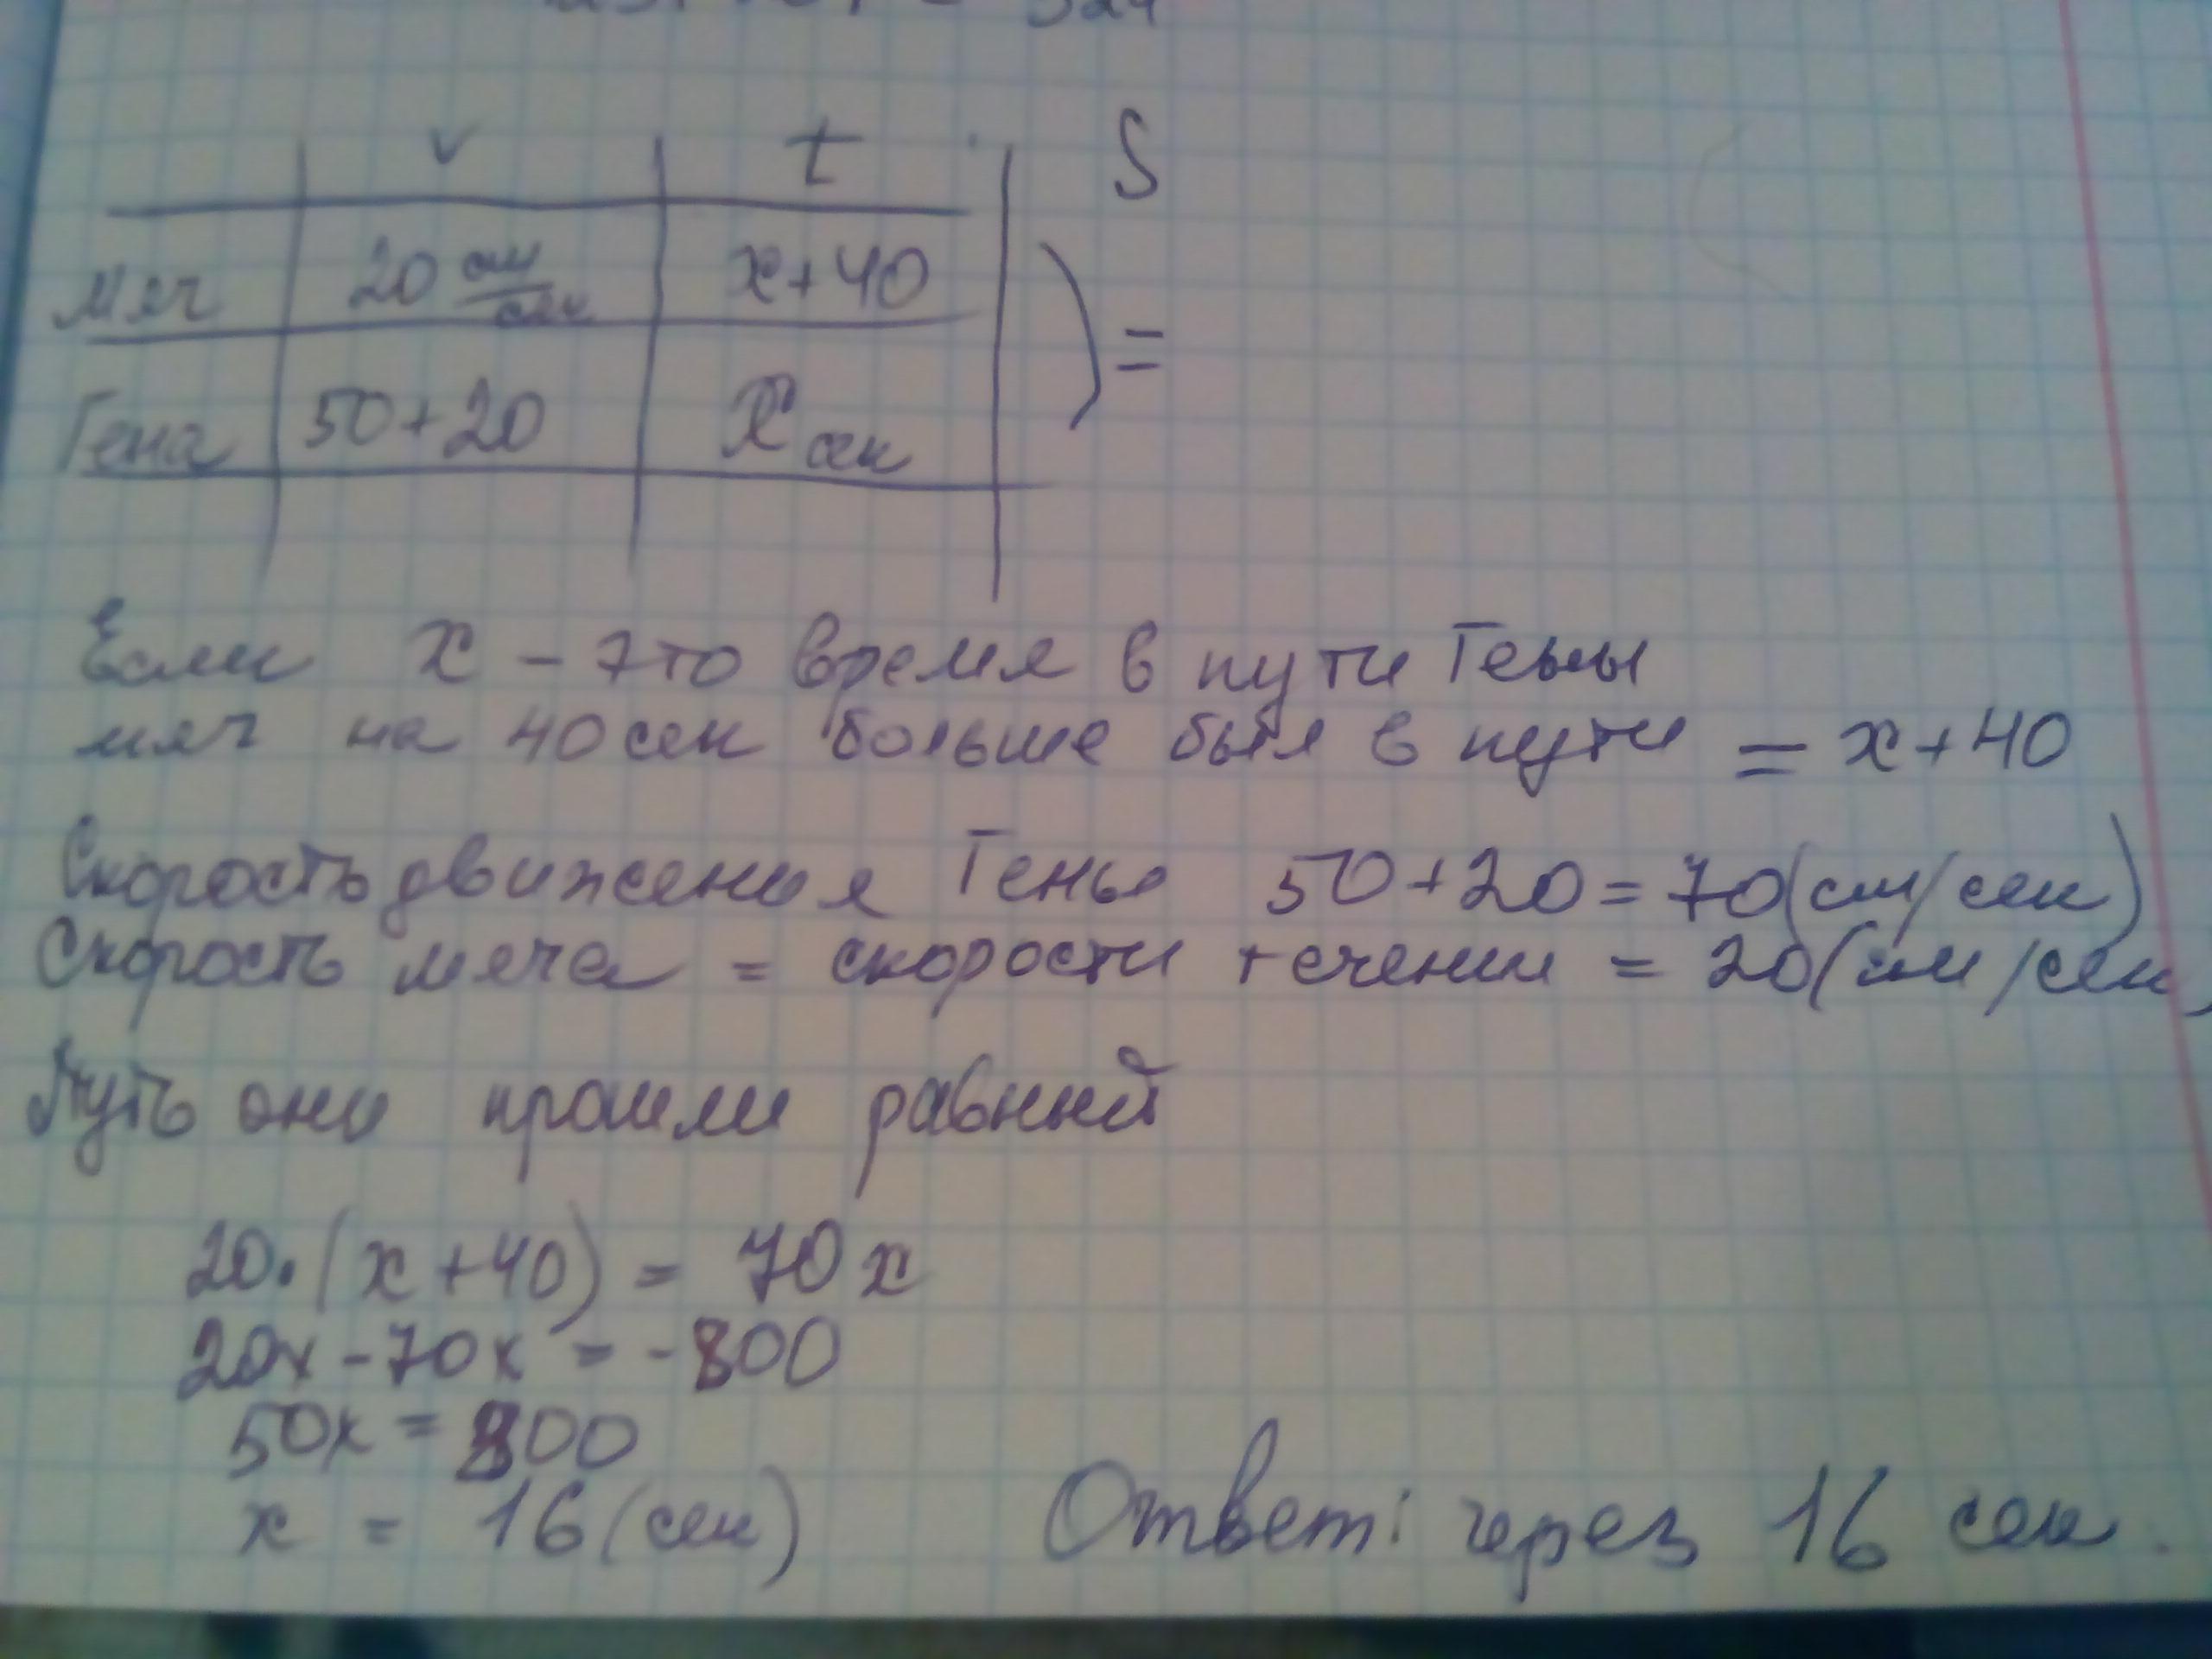 v t S
мяч 20 см/сек x+40
Гена 50+20 x сек
) =
Если x - это время в пути Гены
мяч на 40 сек больше был в пути = x+40
Скорость движения Гены 50+20=70(см/сек)
Скорость мяча = скорости течении = 20(см/сек)
Путь они прошли равный
20·(x+40) = 70x
20x-70x = -800
50x = 800
x = 16(сек)
Ответ: через 16 сек.